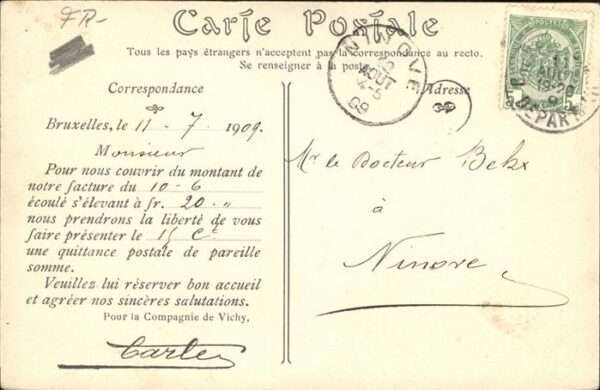 FR-
Carte Postale
Tous les pays étrangers n'acceptent pas la correspondance au recto.
Se renseigner à la poste.
Correspondance
Adresse
Bruxelles, le 11 - 7 1909.
Monsieur
Pour nous couvrir du montant de
notre facture du 10 - 6
écoulé s'élevant à fr. 20. "
nous prendrons la liberté de vous
faire présenter le 15 Ct
une quittance postale de pareille
somme.
Veuillez lui réserver bon accueil
et agréer nos sincères salutations.
Pour la Compagnie de Vichy,
Mr le Docteur
à
Ninove
NINOVE
AOUT
4-5
09
5
DEPART